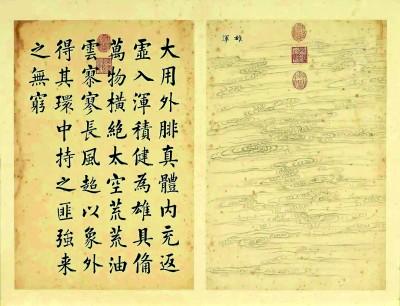 雄渾
大用外腓真體內充返
虛入渾積健為雄具備
萬物橫絕太空荒荒油
雲寥寥長風超以象外
得其環中持之匪強來
之無窮